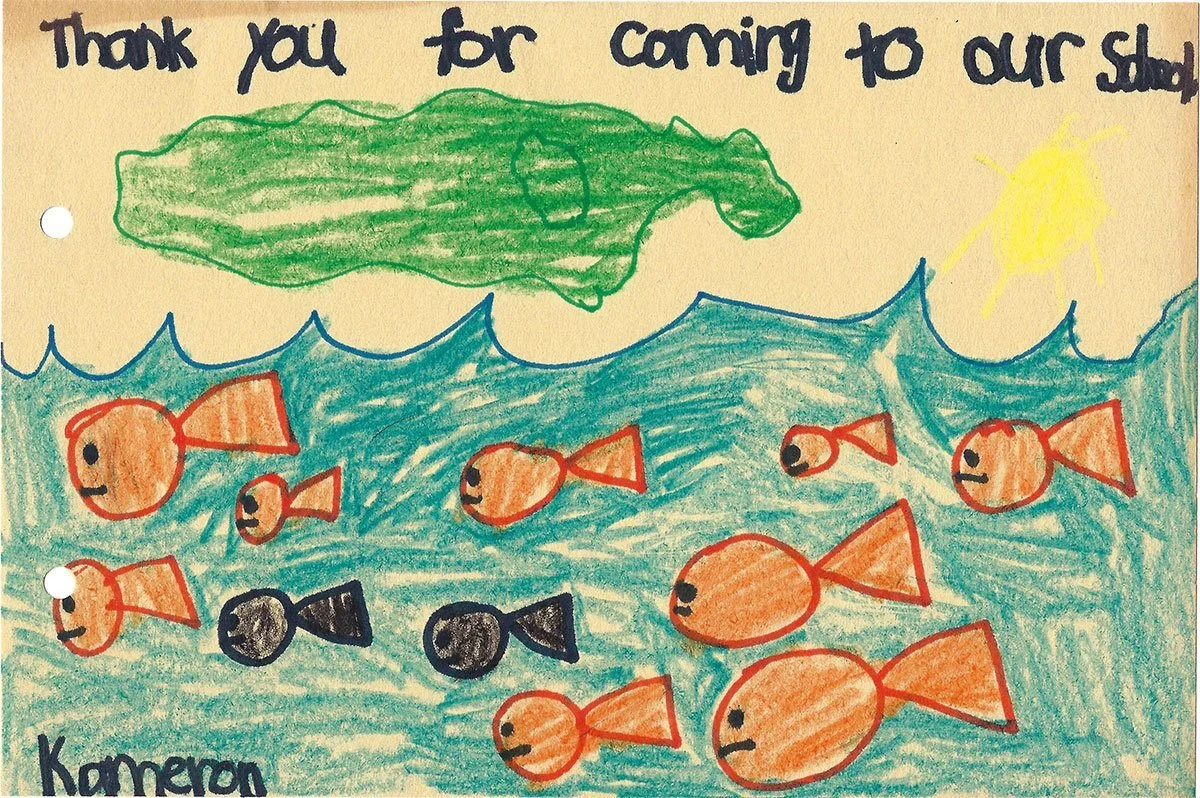 Thank you for coming to our School
Kameron